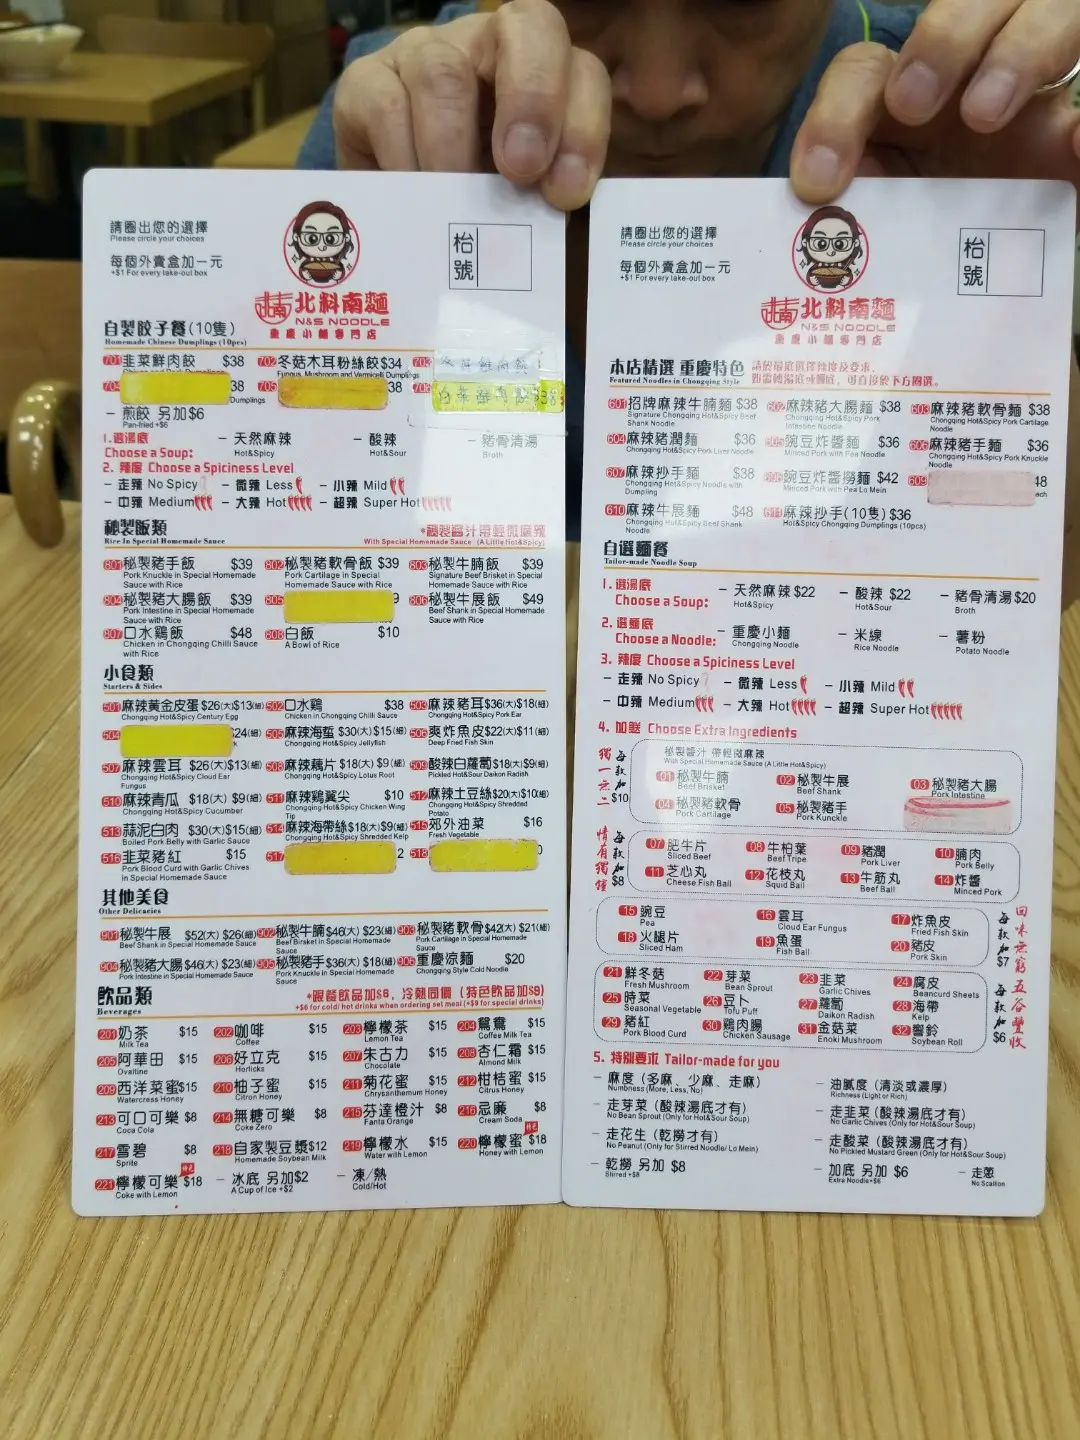 請圈出您的選擇
Please circle your choices
每個外賣盒加一元
+$1 For every take-out box
枱號
北斜南麵
N&S NOODLE
重慶小麵專門店
自製餃子餐(10隻)
Homemade Chinese Dumplings (10pcs)
701 韭菜鮮肉餃 $38 702 冬菇木耳粉絲餃 $34 703
Fungus, Mushroom and Vermicelli Dumplings
704 38 705 38 706 白菜鮮肉餃 $38
Dumplings
– 煎餃 另加$6
Pan-fried +$6
1.選湯底 – 天然麻辣 – 酸辣 – 豬骨清湯
Choose a Soup: Hot&Spicy Hot&Sour Broth
2. 辣度 Choose a Spiciness Level
– 走辣 No Spicy – 微辣 Less – 小辣 Mild
– 中辣 Medium – 大辣 Hot – 超辣 Super Hot
秘製飯類 *調製醬汁帶輕微麻辣
Rice In Special Homemade Sauce With Special Homemade Sauce (A Little Hot&Spicy)
801 秘製豬手飯 $39 802 秘製豬軟骨飯 $39 803 秘製牛腩飯 $39
Pork Knuckle in Special Homemade Sauce with Rice Pork Cartilage in Special Homemade Sauce with Rice Signature Beef Brisket in Special Homemade Sauce with Rice
804 秘製豬大腸飯 $39 805 9 806 秘製牛展飯 $49
Pork Intestine in Special Homemade Sauce with Rice Beef Shank in Special Homemade Sauce with Rice
807 口水鷄飯 $48 808 白飯 $10
Chicken in Chongqing Chilli Sauce with Rice A Bowl of Rice
小食類
Starters & Sides
501 麻辣黃金皮蛋 $26(大)$13(細) 502 口水鷄 $38 503 麻辣豬耳 $36(大)$18(細)
Chongqing Hot&Spicy Century Egg Chicken in Chongqing Chilli Sauce Chongqing Hot&Spicy Pork Ear
504 $24(細) 505 麻辣海蜇 $30(大)$15(細) 506 爽炸魚皮 $22(大)$11(細)
Chongqing Hot&Spicy Jellyfish Deep Fried Fish Skin
507 麻辣雲耳 $26(大)$13(細) 508 麻辣藕片 $18(大) $9(細) 509 酸辣白蘿蔔 $18(大)$9(細)
Chongqing Hot&Spicy Cloud Ear Fungus Chongqing Hot&Spicy Lotus Root Pickled Hot&Sour Daikon Radish
510 麻辣青瓜 $18(大) $9(細) 511 麻辣鷄翼尖 $10 512 麻辣土豆絲 $20(大)$10(細)
Chongqing Hot&Spicy Cucumber Chongqing Hot&Spicy Chicken Wing Tip Chongqing Hot&Spicy Shredded Potato
513 蒜泥白肉 $30(大)$15(細) 514 麻辣海帶絲 $18(大)$9(細) 515 郊外油菜 $16
Boiled Pork Belly with Garlic Sauce Chongqing Hot&Spicy Shredded Kelp Fresh Vegetable
516 韭菜豬紅 $15 517 2 518 0
Pork Blood Curd with Garlic Chives in Special Homemade Sauce
其他美食
Other Delicacies
901 秘製牛展 $52(大) $26(細) 902 秘製牛腩 $46(大) $23(細) 903 秘製豬軟骨 $42(大) $21(細)
Beef Shank in Special Homemade Sauce Beef Birsket in Special Homemade Sauce Pork Cartilage in Special Homemade Sauce
904 秘製豬大腸 $46(大) $23(細) 905 秘製豬手 $36(大) $18(細) 906 重慶涼麵 $20
Pork Intestine in Special Homemade Sauce Pork Knuckle in Special Homemade Sauce Chongqing Style Cold Noodle
飲品類 *跟餐飲品加$6, 冷熱同價 (特色飲品加$9)
Beverages +$6 for cold/ hot drinks when ordering set meal (+$9 for special drinks)
201 奶茶 $15 202 咖啡 $15 203 檸檬茶 $15 204 鴛鴦 $15
Milk Tea Coffee Lemon Tea Coffee Milk Tea
205 阿華田 $15 206 好立克 $15 207 朱古力 $15 208 杏仁霜 $15
Ovaltine Horlicks Chocolate Almond Milk
209 西洋菜蜜 $15 210 柚子蜜 $15 211 菊花蜜 $15 212 柑桔蜜 $15
Watercress Honey Citron Honey Chrysanthemum Honey Citrus Honey
213 可口可樂 $8 214 無糖可樂 $8 215 芬達橙汁 $8 216 忌廉 $8
Coca Cola Coke Zero Fanta Orange Cream Soda
217 雪碧 $8 218 自家製豆漿 $12 219 檸檬水 $15 220 檸檬蜜 特色 $18
Sprite Homemade Soybean Milk Water with Lemon Honey with Lemon
221 檸檬可樂 特色 $18 – 冰底 另加$2 – 凍/熱
Coke with Lemon A Cup of Ice +$2 Cold/Hot
請圈出您的選擇
Please circle your choices
每個外賣盒加一元
+$1 For every take-out box
枱號
北斜南麵
N&S NOODLE
重慶小麵專門店
本店精選 重慶特色
Featured Noodles in Chongqing Style
601 招牌麻辣牛腩麵 $38 602 麻辣豬大腸麵 $38 603 麻辣豬軟骨麵 $38
Signature Chongqing Hot&Spicy Beef Shank Noodle Chongqing Hot&Spicy Pork Intestin Noodle Chongqing Hot&Spicy Pork Cartilage Noodle
604 麻辣豬潤麵 $36 605 豌豆炸醬麵 $36 606 麻辣豬手麵 $36
Chongqing Hot&Spicy Pork Liver Noodle Minced Pork with Pea Noodle Chongqing Hot&Spicy Pork Knuckle Noodle
607 麻辣抄手麵 $38 608 豌豆炸醬撈麵 $42 609 48
Chongqing Hot&Spicy Noodle with Dumpling Minced Pork with Pea Lo Mein
610 麻辣牛展麵 $48 611 麻辣抄手(10隻) $36
Chongqing Hot&Spicy Beef Shank Noodle Hot&Spicy Chongqing Dumplings (10pcs)
自選麵餐
Tailor-made Noodle Soup
1. 選湯底 – 天然麻辣 $22 – 酸辣 $22 – 豬骨清湯 $20
Choose a Soup: Hot&Spicy Hot&Sour Broth
2. 選麵底 – 重慶小麵 – 米線 – 薯粉
Choose a Noodle: Chongqing Noodle Rice Noodle Potato Noodle
3. 辣度 Choose a Spiciness Level
– 走辣 No Spicy – 微辣 Less – 小辣 Mild
– 中辣 Medium – 大辣 Hot – 超辣 Super Hot
4. 加餸 Choose Extra Ingredients
獨一無二 每款加$10
秘製醬汁 帶輕微麻辣
With Special Homemade Sauce (A Little Hot&Spicy)
01 秘製牛腩 02 秘製牛展 03 秘製豬大腸
Beef Brisket Beef Shank Pork Intestine
04 秘製豬軟骨 05 秘製豬手
Pork Cartilage Pork Kunckle
情有獨鍾 每款加$8
07 肥牛片 08 牛柏葉 09 豬潤 10 腩肉
Sliced Beef Beef Tripe Pork Liver Pork Belly
11 芝心丸 12 花枝丸 13 牛筋丸 14 炸醬
Cheese Fish Ball Squid Ball Beef Ball Minced Pork
15 豌豆 16 雲耳 17 炸魚皮
Pea Cloud Ear Fungus Fried Fish Skin
18 火腿片 19 魚蛋 20 豬皮
Sliced Ham Fish Ball Pork Skin
回味無窮 每款加$7
21 鮮冬菇 22 芽菜 23 韭菜 24 腐皮
Fresh Mushroom Bean Sprout Garlic Chives Beancurd Sheets
25 時菜 26 豆卜 27 蘿蔔 28 海帶
Seasonal Vegetable Tofu Puff Daikon Radish Kelp
29 豬紅 30 鷄肉腸 31 金菇菜 32 響鈴
Pork Blood Curd Chicken Sausage Enoki Mushroom Soybean Roll
五谷豐收 每款加$6
5. 特別要求 Tailor-made for you
– 麻度 (多麻、少麻、走麻) – 油膩度 (清淡或濃厚)
Numbness (More, Less, No) Richness (Light or Rich)
– 走芽菜 (酸辣湯底才有) – 走韭菜 (酸辣湯底才有)
No Bean Sprout (Only for Hot&Sour Soup) No Garlic Chives (Only for Hot&Sour Soup)
– 走花生 (乾撈才有) – 走酸菜 (酸辣湯底才有)
No Peanut (Only for Stirred Noodle/ Lo Mein) No Pickled Mustard Green (Only for Hot&Sour Soup)
– 乾撈 另加 $8 – 加底 另加 $6 – 走蔥
Stirred +$8 Extra Noodle+$6 No Scallion